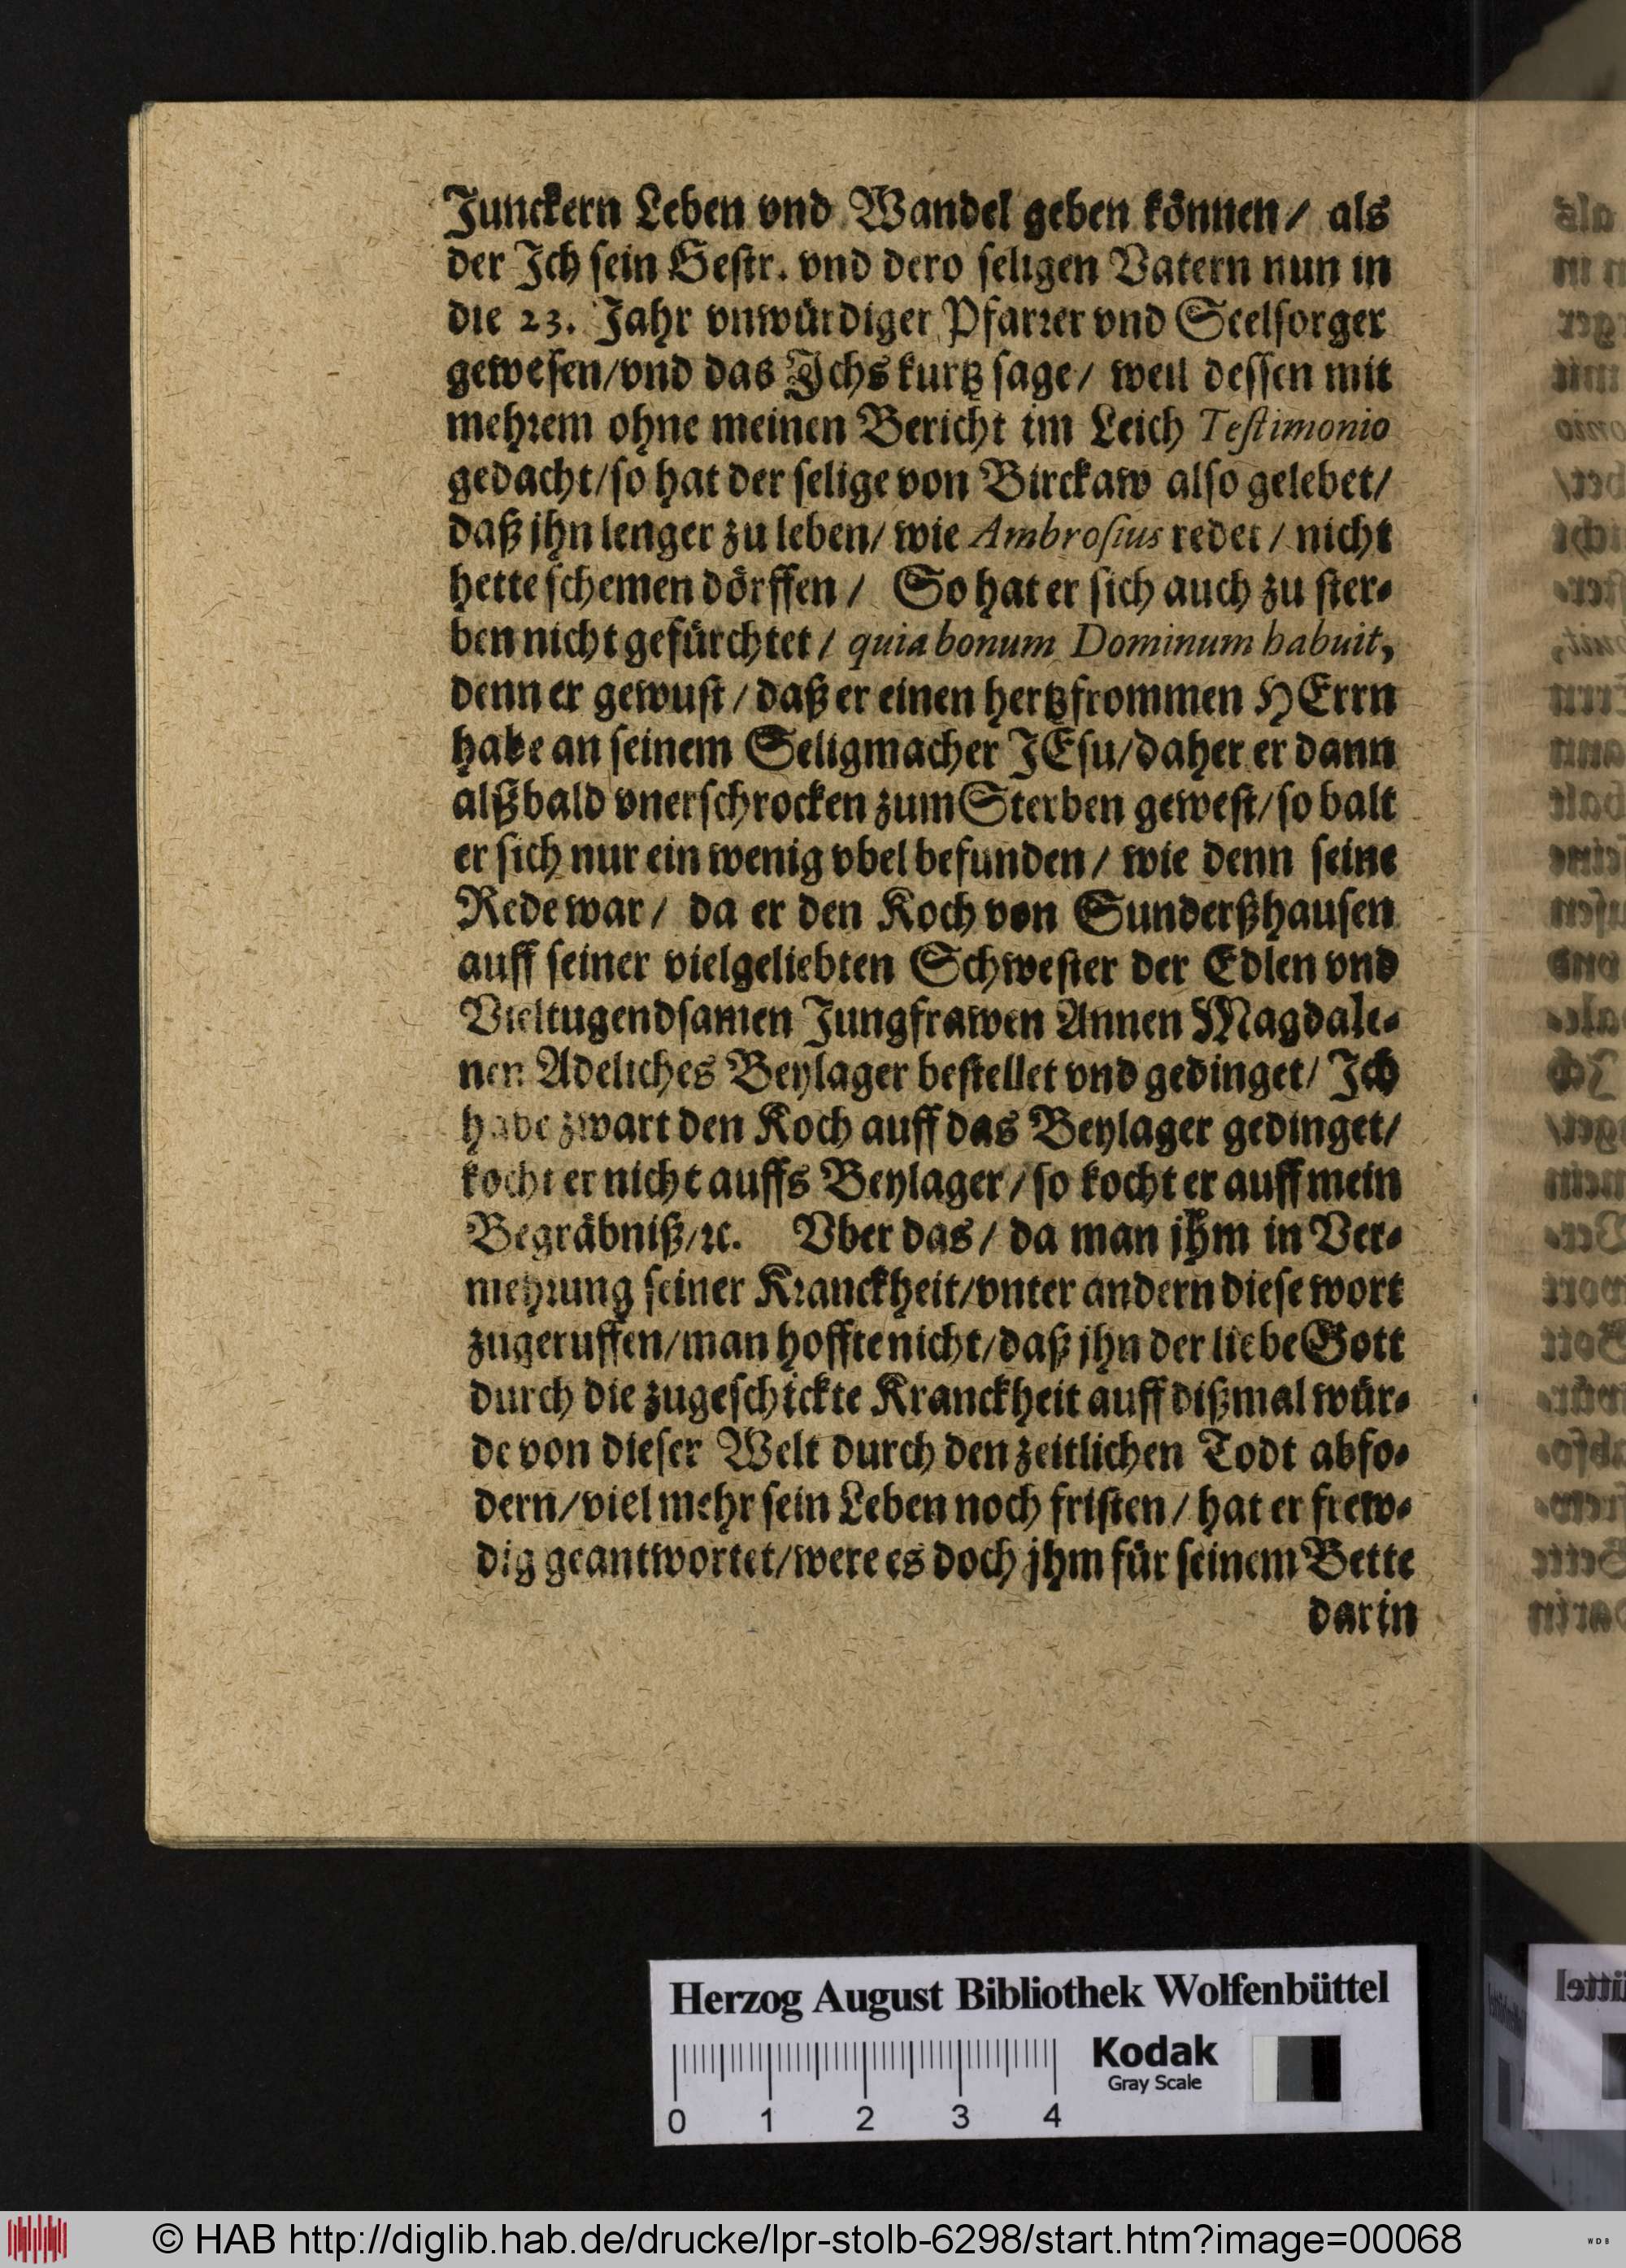 Junckern Leben vnd Wandel geben können/ als
der Jch sein Gestr. vnd dero seligen Vatern nun in
die 23. Jahr vnwürdiger Pfarrer vnd Seelsorger
gewesen/vnd das Jchs kurtz sage/ weil dessen mit
mehrem ohne meinen Bericht im Leich Testimonio
gedacht/so hat der selige von Birckaw also gelebet/
daß jhn lenger zu leben/ wie Ambrosius redet/ nicht
hette schemen dörffen/ So hat er sich auch zu ster-
ben nicht gefürchtet/ quia bonum Dominum habuit,
denn er gewust/daß er einen hertzfrommen HErrn
habe an seinem Seligmacher JEsu/daher er dann
alßbald vnerschrocken zum Sterben gewest/so balt
er sich nur ein wenig vbel befunden/ wie denn seine
Rede war/ da er den Koch von Sunderßhausen
auff seiner vielgeliebten Schwester der Edlen vnd
Vieltugendsamen Jungfrawen Annen Magdale-
nen Adeliches Beylager bestellet vnd gedinget/ Jch
habe zwart den Koch auff das Beylager gedinget/
kocht er nicht auffs Beylager/so kocht er auff mein
Begräbniß/ꝛc. Vber das/ da man jhm in Ver-
mehrung seiner Kranckheit/vnter andern diese wort
zugeruffen/man hoffte nicht/daß jhn der liebe Gott
durch die zugeschickte Kranckheit auff dißmal wür-
de von dieser Welt durch den zeitlichen Todt abfo-
dern/viel mehr sein Leben noch fristen/ hat er frew-
dig geantwortet/were es doch jhm für seinem Bette
darin
Herzog August Bibliothek Wolfenbüttel
Kodak
Gray Scale
0 1 2 3 4
© HAB http://diglib.hab.de/drucke/lpr-stolb-6298/start.htm?image=00068
WDB